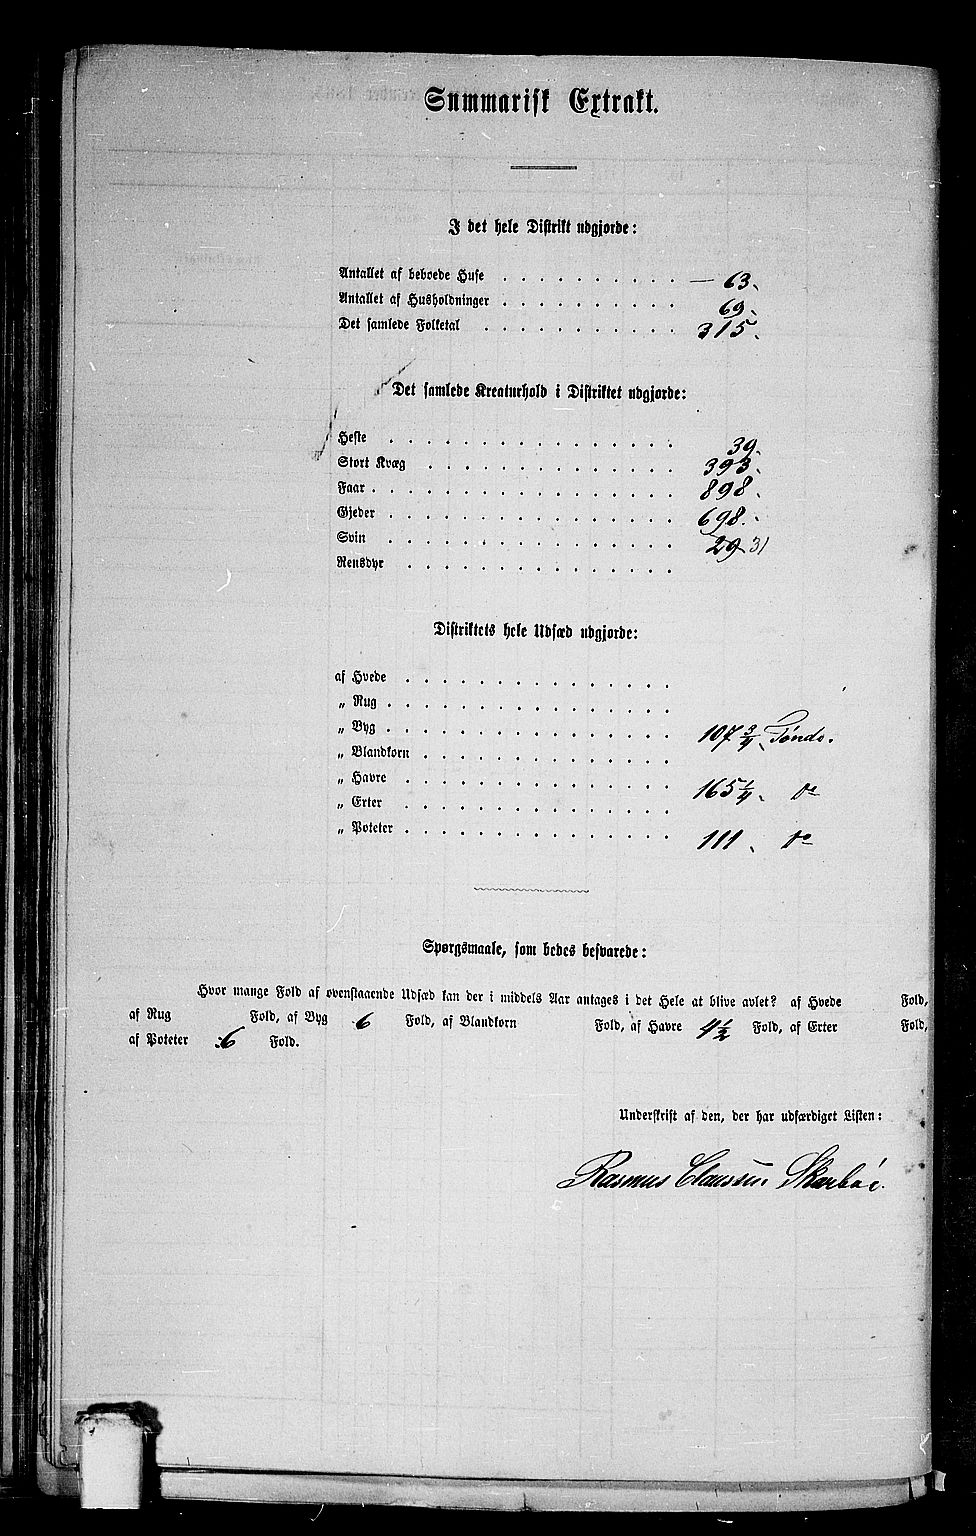 Summarisk Extrakt.
I det hele Distrikt udgjorde:
Antallet af beboede Huse . . . . . . . . . . — 63.
Antallet af Husholdninger . . . . . . . . . . 69.
Det samlede Folketal . . . . . . . . . . . 315.
Det samlede Kreaturhold i Distriktet udgjorde:
Heste . . . . . . . . . . . . . . . 39.
Stort Kvæg . . . . . . . . . . . . . 393.
Faar . . . . . . . . . . . . . . . . 898.
Gjeder . . . . . . . . . . . . . . . 698.
Svin . . . . . . . . . . . . . . . 29 31
Rensdyr . . . . . . . . . . . . . .
Distriktets hele Udsæd udgjorde:
af Hvede . . . . . . . . . . . . . .
„ Rug . . . . . . . . . . . . . . .
„ Byg . . . . . . . . . . . . . . . 107 3/4 Tønde.
„ Blandkorn . . . . . . . . . . . . .
„ Havre . . . . . . . . . . . . . . 165 1/4. do
„ Erter . . . . . . . . . . . . . .
„ Poteter . . . . . . . . . . . . . . 111. do
Spørgsmaale, som bedes besvarede:
Hvor mange Fold af ovenstaaende Udsæd kan der i middels Aar antages i det Hele at blive avlet? af Hvede Fold,
af Rug Fold, af Byg 6 Fold, af Blandkorn Fold, af Havre 4 1/2 Fold, af Erter Fold,
af Poteter 6 Fold.
Underskrift af den, der har udfærdiget Listen:
Rasmus Claussen Skarbøe.